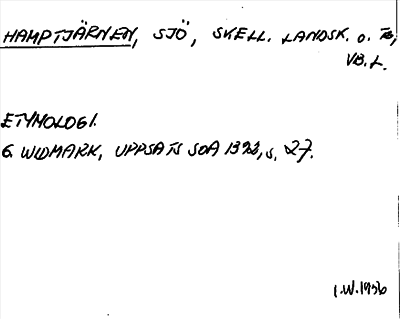 HAMPTJÄRNEN, SJÖ, SKELL. LANDSK. O. TG,
VB. L.
ETYMOLOGI.
G. WIDMARK, UPPSATS SOA 1392, s. 27.
I.W. 1956